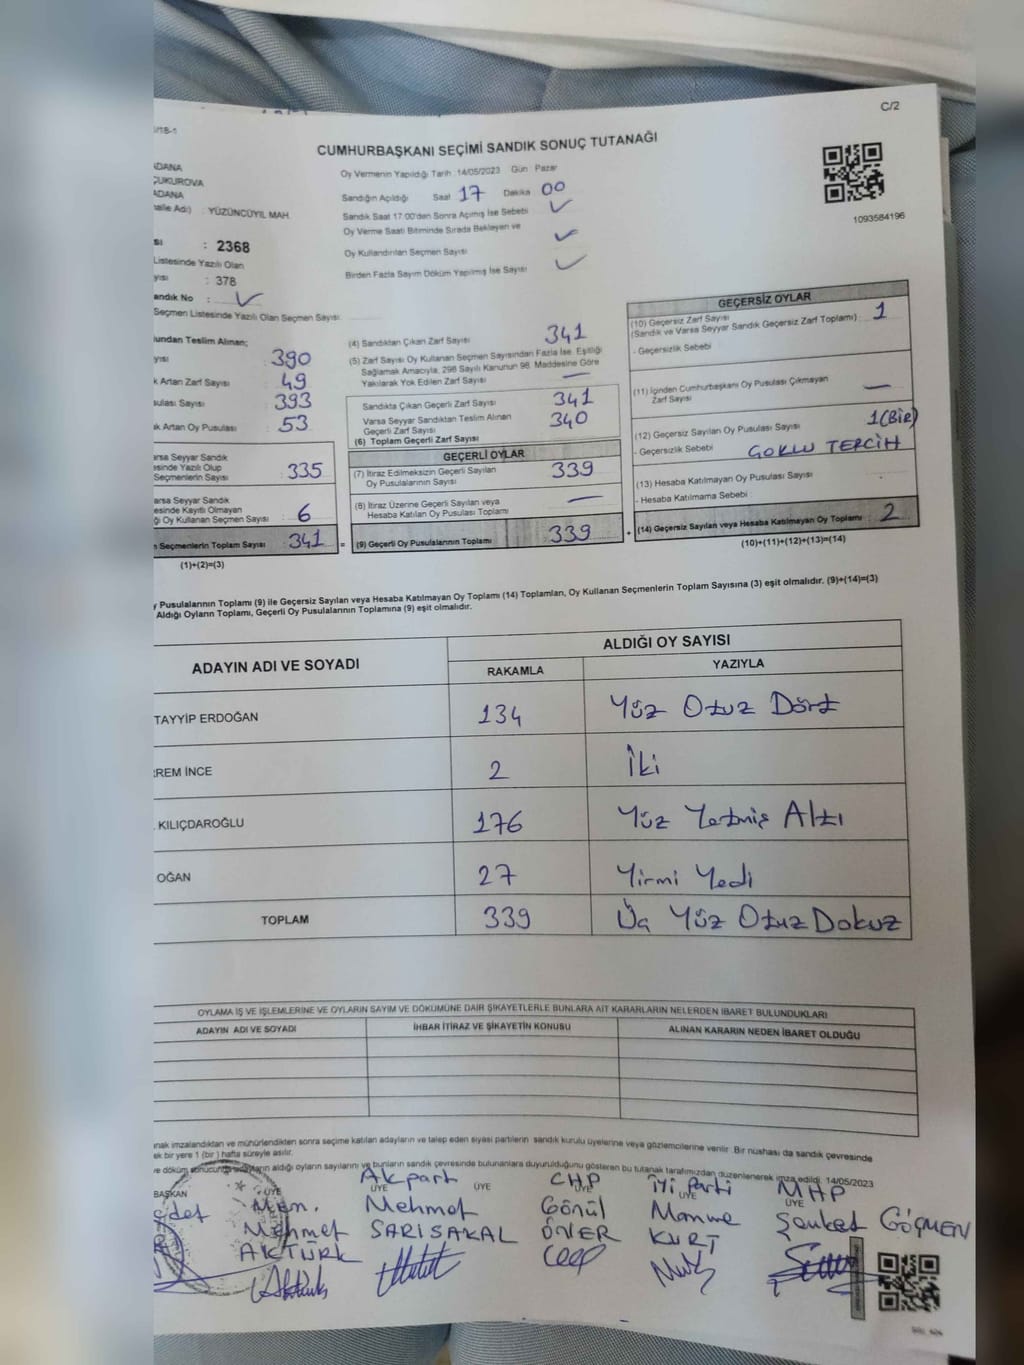 C/2
/18-1
CUMHURBAŞKANI SEÇİMİ SANDIK SONUÇ TUTANAĞI
ADANA
ÇUKUROVA
ADANA
halle Adı) : YÜZÜNCÜYIL MAH.
: 2368
Listesinde Yazılı Olan
yısı : 378
andık No :
Seçmen Listesinde Yazılı Olan Seçmen Sayısı:
Oy Vermenin Yapıldığı Tarih :14/05/2023 Gün Pazar
Sandığın Açıldığı Saat 17 Dakika 00
Sandık Saat 17:00'den Sonra Açımış İse Sebebi
Oy Verme Saati Bitiminde Sırada Bekleyen ve
Oy Kullandırılan Seçmen Sayısı
Birden Fazla Sayım Döküm Yapılmış İse Sayısı
1093584196
undan Teslim Alınan;
yısı : 390
k Artan Zarf Sayısı : 49
sulası Sayısı : 393
k Artan Oy Pusulası : 53
arsa Seyyar Sandık
esinde Yazılı Olup
Seçmenlerin Sayısı : 335
arsa Seyyar Sandık
esinde Kayıtlı Olmayan
ğı Oy Kullanan Seçmen Sayısı : 6
n Seçmenlerin Toplam Sayısı : 341
(1)+(2)=(3)
(4) Sandıktan Çıkan Zarf Sayısı 341
(5) Zarf Sayısı Oy Kullanan Seçmen Sayısından Fazla İse, Eşitliği
Sağlamak Amacıyla, 298 Sayılı Kanunun 98. Maddesine Göre
Yakılarak Yok Edilen Zarf Sayısı —
Sandıkta Çıkan Geçerli Zarf Sayısı 341
Varsa Seyyar Sandıktan Teslim Alınan
Geçerli Zarf Sayısı 340
(6) Toplam Geçerli Zarf Sayısı
GEÇERLİ OYLAR
(7) İtiraz Edilmeksizin Geçerli Sayılan
Oy Pusulalarının Sayısı 339
(8) İtiraz Üzerine Geçerli Sayılan veya
Hesaba Katılan Oy Pusulası Toplamı —
= (9) Geçerli Oy Pusulalarının Toplamı 339 +
GEÇERSİZ OYLAR
(10) Geçersiz Zarf Sayısı
(Sandık ve Varsa Seyyar Sandık Geçersiz Zarf Toplamı) : 1
- Geçersizlik Sebebi
(11) İçinden Cumhurbaşkanı Oy Pusulası Çıkmayan
Zarf Sayısı —
(12) Geçersiz Sayılan Oy Pusulası Sayısı 1(BİR)
- Geçersizlik Sebebi ÇOKLU TERCİH
(13) Hesaba Katılmayan Oy Pusulası Sayısı
- Hesaba Katılmama Sebebi
(14) Geçersiz Sayılan veya Hesaba Katılmayan Oy Toplamı 2
(10)+(11)+(12)+(13)=(14)
y Pusulalarının Toplamı (9) ile Geçersiz Sayılan veya Hesaba Katılmayan Oy Toplamı (14) Toplamları, Oy Kullanan Seçmenlerin Toplam Sayısına (3) eşit olmalıdır. (9)+(14)=(3)
Aldığı Oyların Toplamı, Geçerli Oy Pusulalarının Toplamına (9) eşit olmalıdır.
ADAYIN ADI VE SOYADI
ALDIĞI OY SAYISI
RAKAMLA YAZIYLA
TAYYİP ERDOĞAN 134 Yüz Otuz Dört
RREM İNCE 2 İki
. KILIÇDAROĞLU 176 Yüz Yetmiş Altı
OĞAN 27 Yirmi Yedi
TOPLAM 339 Üç Yüz Otuz Dokuz
OYLAMA İŞ VE İŞLEMLERİNE VE OYLARIN SAYIM VE DÖKÜMÜNE DAİR ŞİKAYETLERLE BUNLARA AİT KARARLARIN NELERDEN İBARET BULUNDUKLARI
ADAYIN ADI VE SOYADI İHBAR İTİRAZ VE ŞİKAYETİN KONUSU ALINAN KARARIN NEDEN İBARET OLDUĞU
anak imzalandıktan ve mühürlendikten sonra seçime katılan adayların ve talep eden siyasi partilerin sandık kurulu üyelerine veya gözlemcilerine verilir. Bir nüshası da sandık çevresinde
ek bir yere 1 (bir ) hafta süreyle asılır.
ve döküm sonucunda adayların aldığı oyların sayılarını ve bunların sandık çevresinde bulunanlara duyurulduğunu gösteren bu tutanak tarafımızdan düzenlenerek imza edildi. 14/05/2023
Akparti CHP İyi Parti MHP
BAŞKAN ÜYE ÜYE ÜYE ÜYE ÜYE ÜYE
Mem. Mehmet Gönül Şevket GÖÇMEN
Mehmet SARISAKAL ÖNER KURT
AKTÜRK